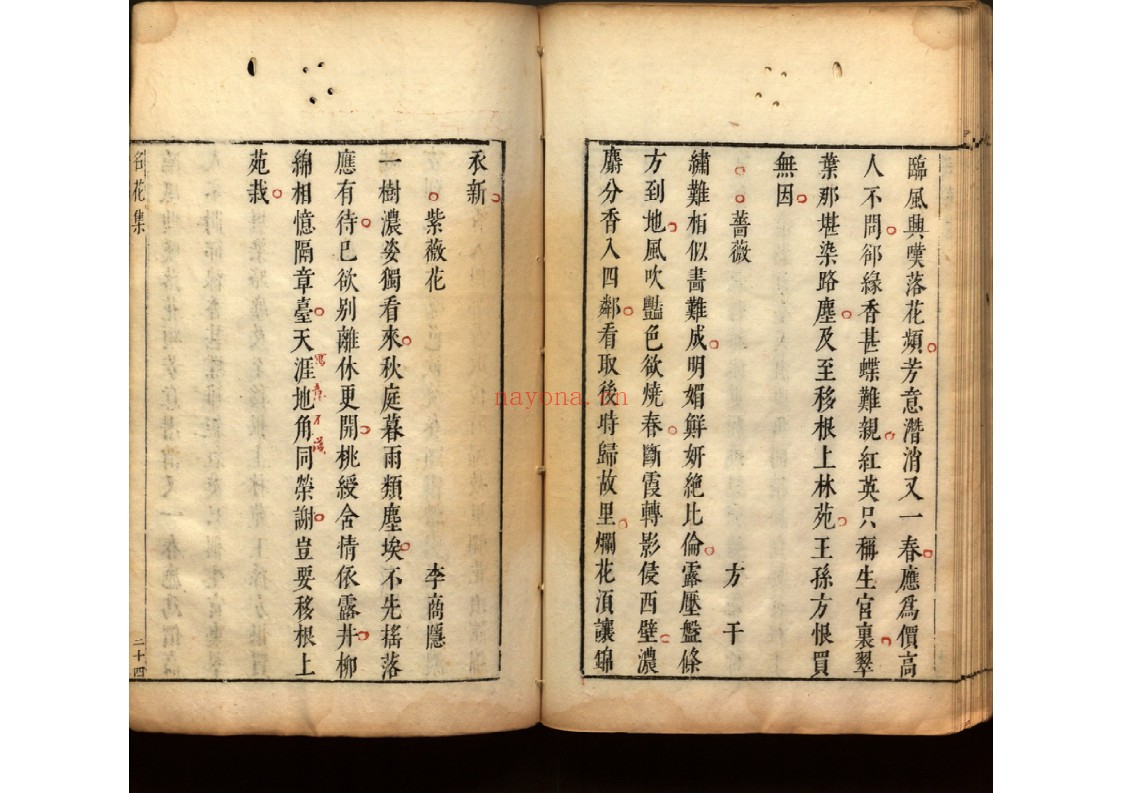 臨風興嘆落花頻芳意潛消又一春應爲價高
人不問郤緣香甚蝶難親紅英只稱生宫裏翠
葉那堪染路塵及至移根上林苑王孫方恨買
無因
薔薇 方干
繡難相似畵難成明媚鮮妍絶比倫露壓盤條
方到地風吹豔色欲燒春斷霞轉影侵西壁濃
麝分香入四鄰看取後時歸故里爛花湏讓錦
衣新
紫薇花 李商隱
一樹濃姿獨看來秋庭暮雨類塵埃不先摇落
應有待已欲别離休更開桃綬含情依露井柳
綿相憶隔章臺天涯地角同榮謝豈要移根上
苑栽
名花集
二十四
nayona.cn